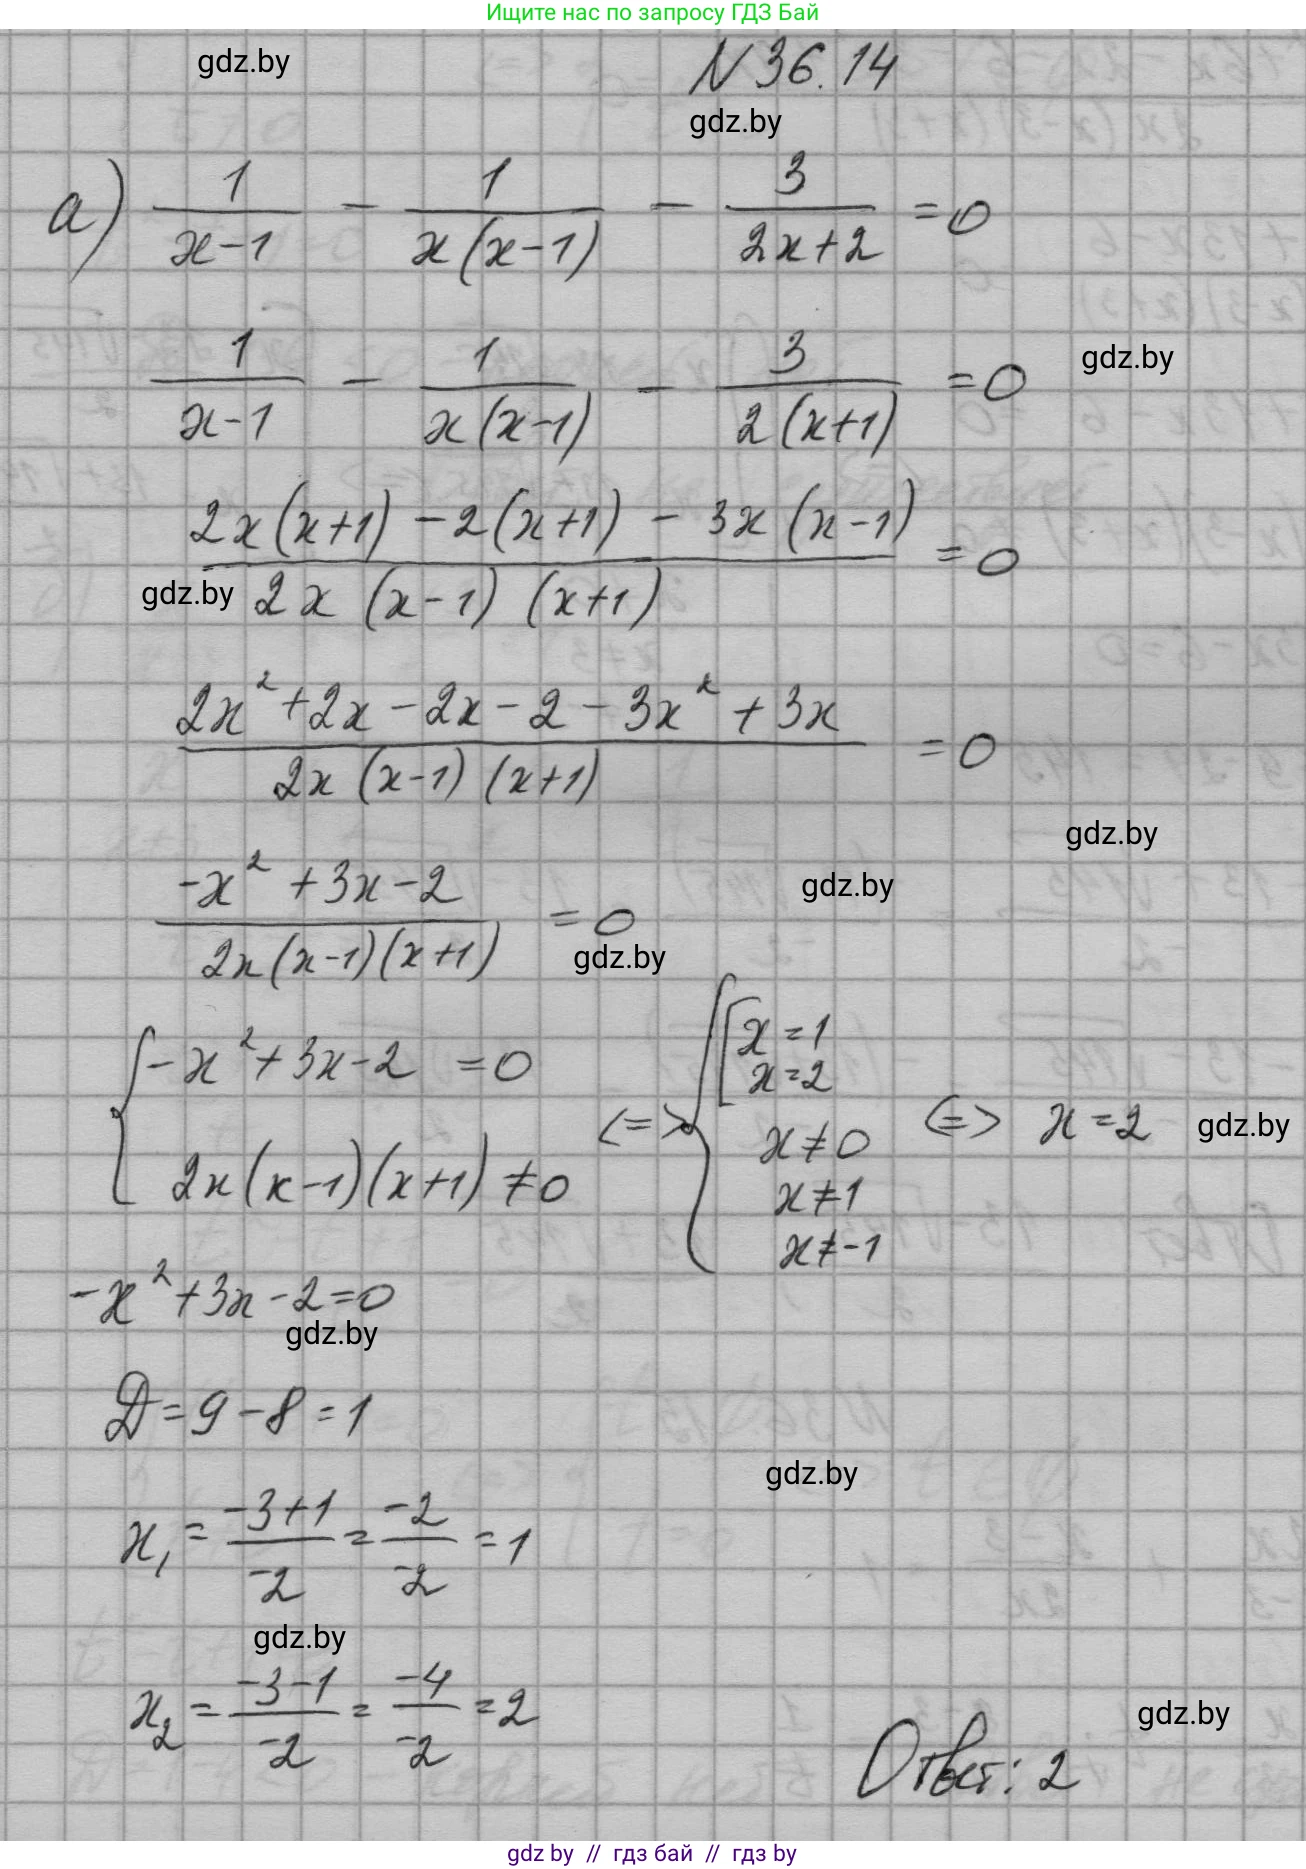 Ищите нас по запросу ГДЗ Бай
gdz.by
N 36.14
gdz.by
а) 1/(x-1) - 1/(x(x-1)) - 3/(2x+2) = 0
1/(x-1) - 1/(x(x-1)) - 3/(2(x+1)) = 0
gdz.by
(2x(x+1) - 2(x+1) - 3x(x-1))/(2x(x-1)(x+1)) = 0
gdz.by
(2x² + 2x - 2x - 2 - 3x² + 3x)/(2x(x-1)(x+1)) = 0
gdz.by
gdz.by
(-x² + 3x - 2)/(2x(x-1)(x+1)) = 0
gdz.by
{ -x² + 3x - 2 = 0
2x(x-1)(x+1) ≠ 0
<=> { [ x = 1
x = 2
x ≠ 0
x ≠ 1
x ≠ -1
<=> x = 2
gdz.by
-x² + 3x - 2 = 0
gdz.by
D = 9 - 8 = 1
gdz.by
x₁ = (-3+1)/(-2) = (-2)/(-2) = 1
gdz.by
x₂ = (-3-1)/(-2) = (-4)/(-2) = 2
gdz.by
Ответ: 2
gdz by // гдз бай // гдз by